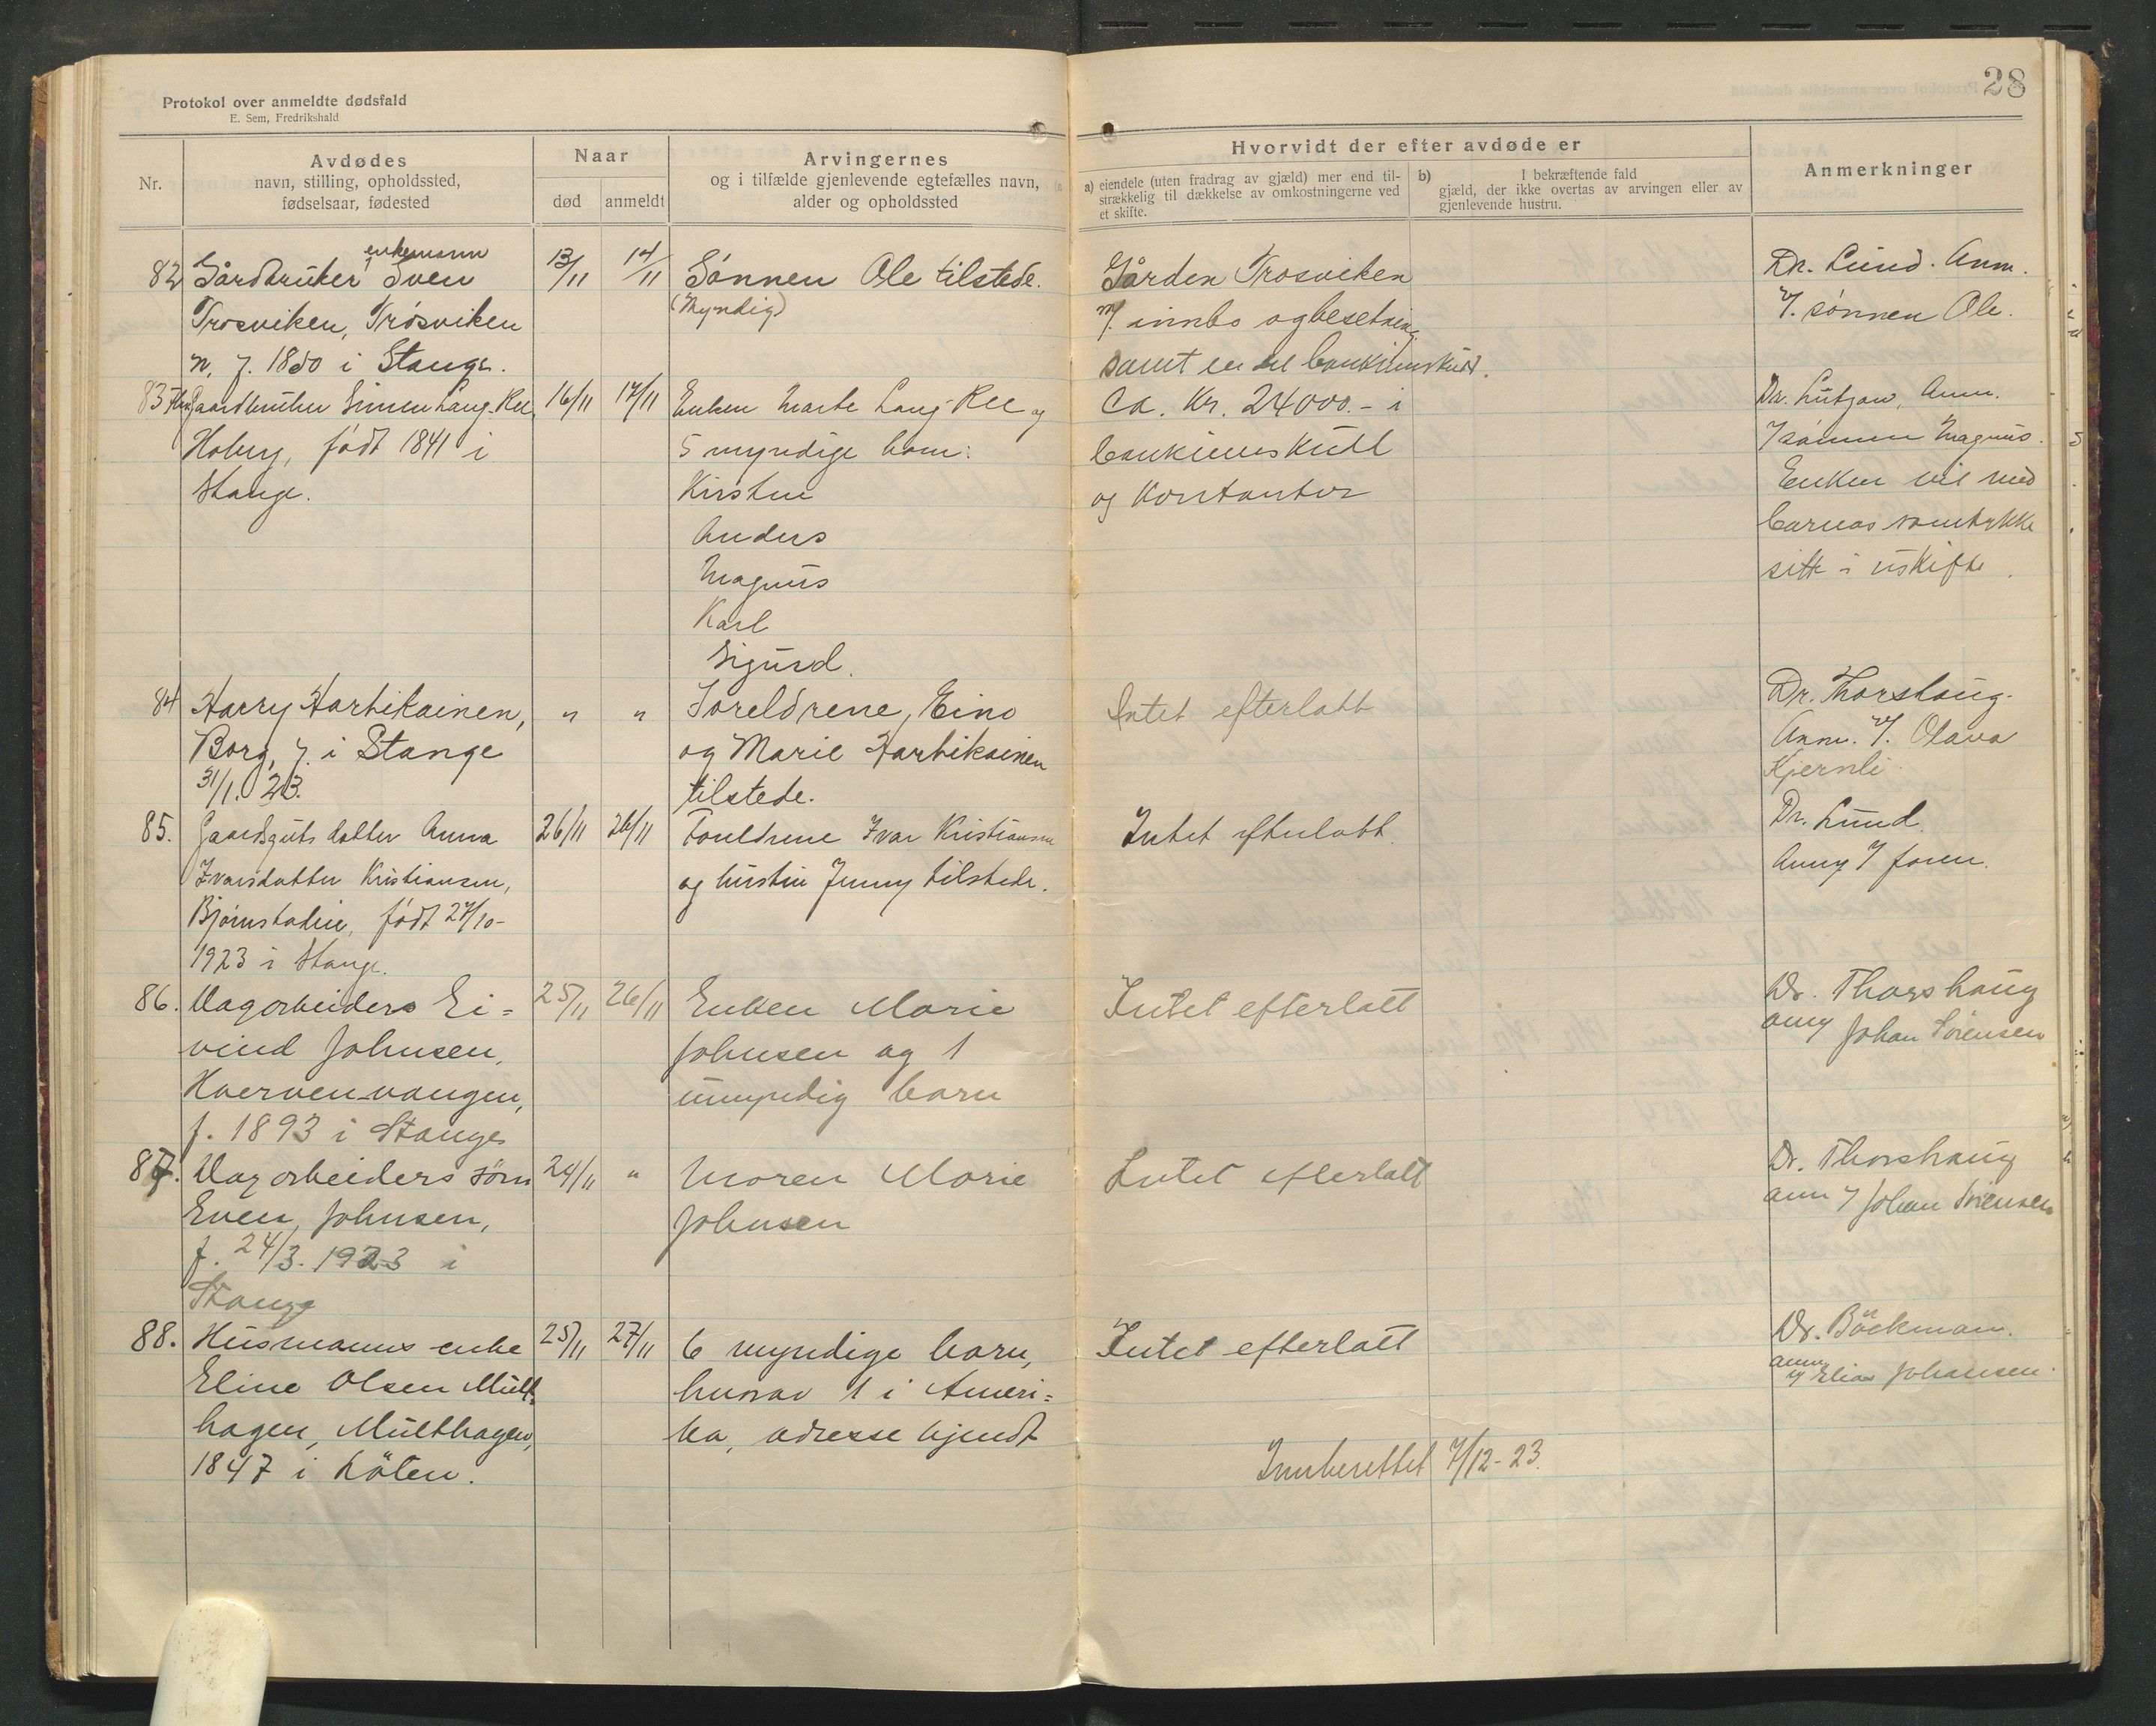 28
Protokol over anmeldte dødsfald
E. Sem, Fredrikshald
Nr.
Avdødes
navn, stilling, opholdssted,
fødselsaar, fødested
Naar
død
anmeldt
Arvingernes
og i tilfælde gjenlevende egtefælles navn,
alder og opholdssted
Hvorvidt der efter avdøde er
a) eiendele (uten fradrag av gjæld) mer end til-
strækkelig til dækkelse av omkostningerne ved
et skifte.
b) I bekræftende fald
gjæld, der ikke overtas av arvingen eller av
gjenlevende hustru.
Anmerkninger
82
enkemann
Gårdbruker Sven
Trosviken, Trosviken
n, f. 1850 i Stange.
13/11
14/11
Sønnen Ole tilstede.
(Myndig)
Gården Trosviken
m/. innbo og besetning
samt en del bankinnskudd.
Dr. Lund. Anm.
v/. sønnen Ole.
83
Gaardbruker Simen Lang-Ree,
Hoberg, født 1841 i
Stange.
16/11
17/11
Enken Marte Lang-Ree og
5 myndige barn:
Kirstine
Anders
Magnus
Karl
Sigurd.
Ca. Kr. 24000.- i
bankinnskudd
og kontanter
Dr. Lützow, Anm.
v/ sønnen Magnus.
Enken vil med
barnas samtykke
sitte i uskifte.
84
Harry Hartikainen,
Borg, f. i Stange
31/1. 23.
" "
Foreldrene, Eino
og Marie Hartikainen
tilstede.
Intet efterlatt
Dr. Thorshaug.
Anm. v/. Olava
Kjernli
85.
Gaardsguts datter Anna
Ivarsdatter Kristiansen,
Bjørnstadeie, født 27/10-
1923 i Stange.
26/11
26/11
Foreldrene Ivar Kristiansen
og hustru Jenny tilstede.
Intet efterlatt.
Dr. Lund.
Anm v/ faren.
86.
Dagarbeiders Ei=
vind Johnsen,
Hvervenvangen,
f. 1893 i Stange
25/11
26/11
Enken Marie
Johnsen og 1
umyndig barn
Intet efterlatt
Dr. Thorshaug
anm v/ Johan Sörensen
87.
Dagarbeiders sönn
Even Johnsen,
f. 24/3. 1923 i
Stange
24/11
"
Moren Marie
Johnsen
Intet efterlatt
Dr. Thorshaug
anm v/ Johan Sörensen
88.
Husmanns enke
Eline Olsen Mult=
hagen, Multhagen,
1847 i Löten.
25/11
27/11
6 myndige barn,
hvorav 1 i Ameri=
ka, adresse kjendt
Intet efterlatt
Dr. Böckman.
anm
v/ Elias Johansen.
Innberettet 7/12-23.